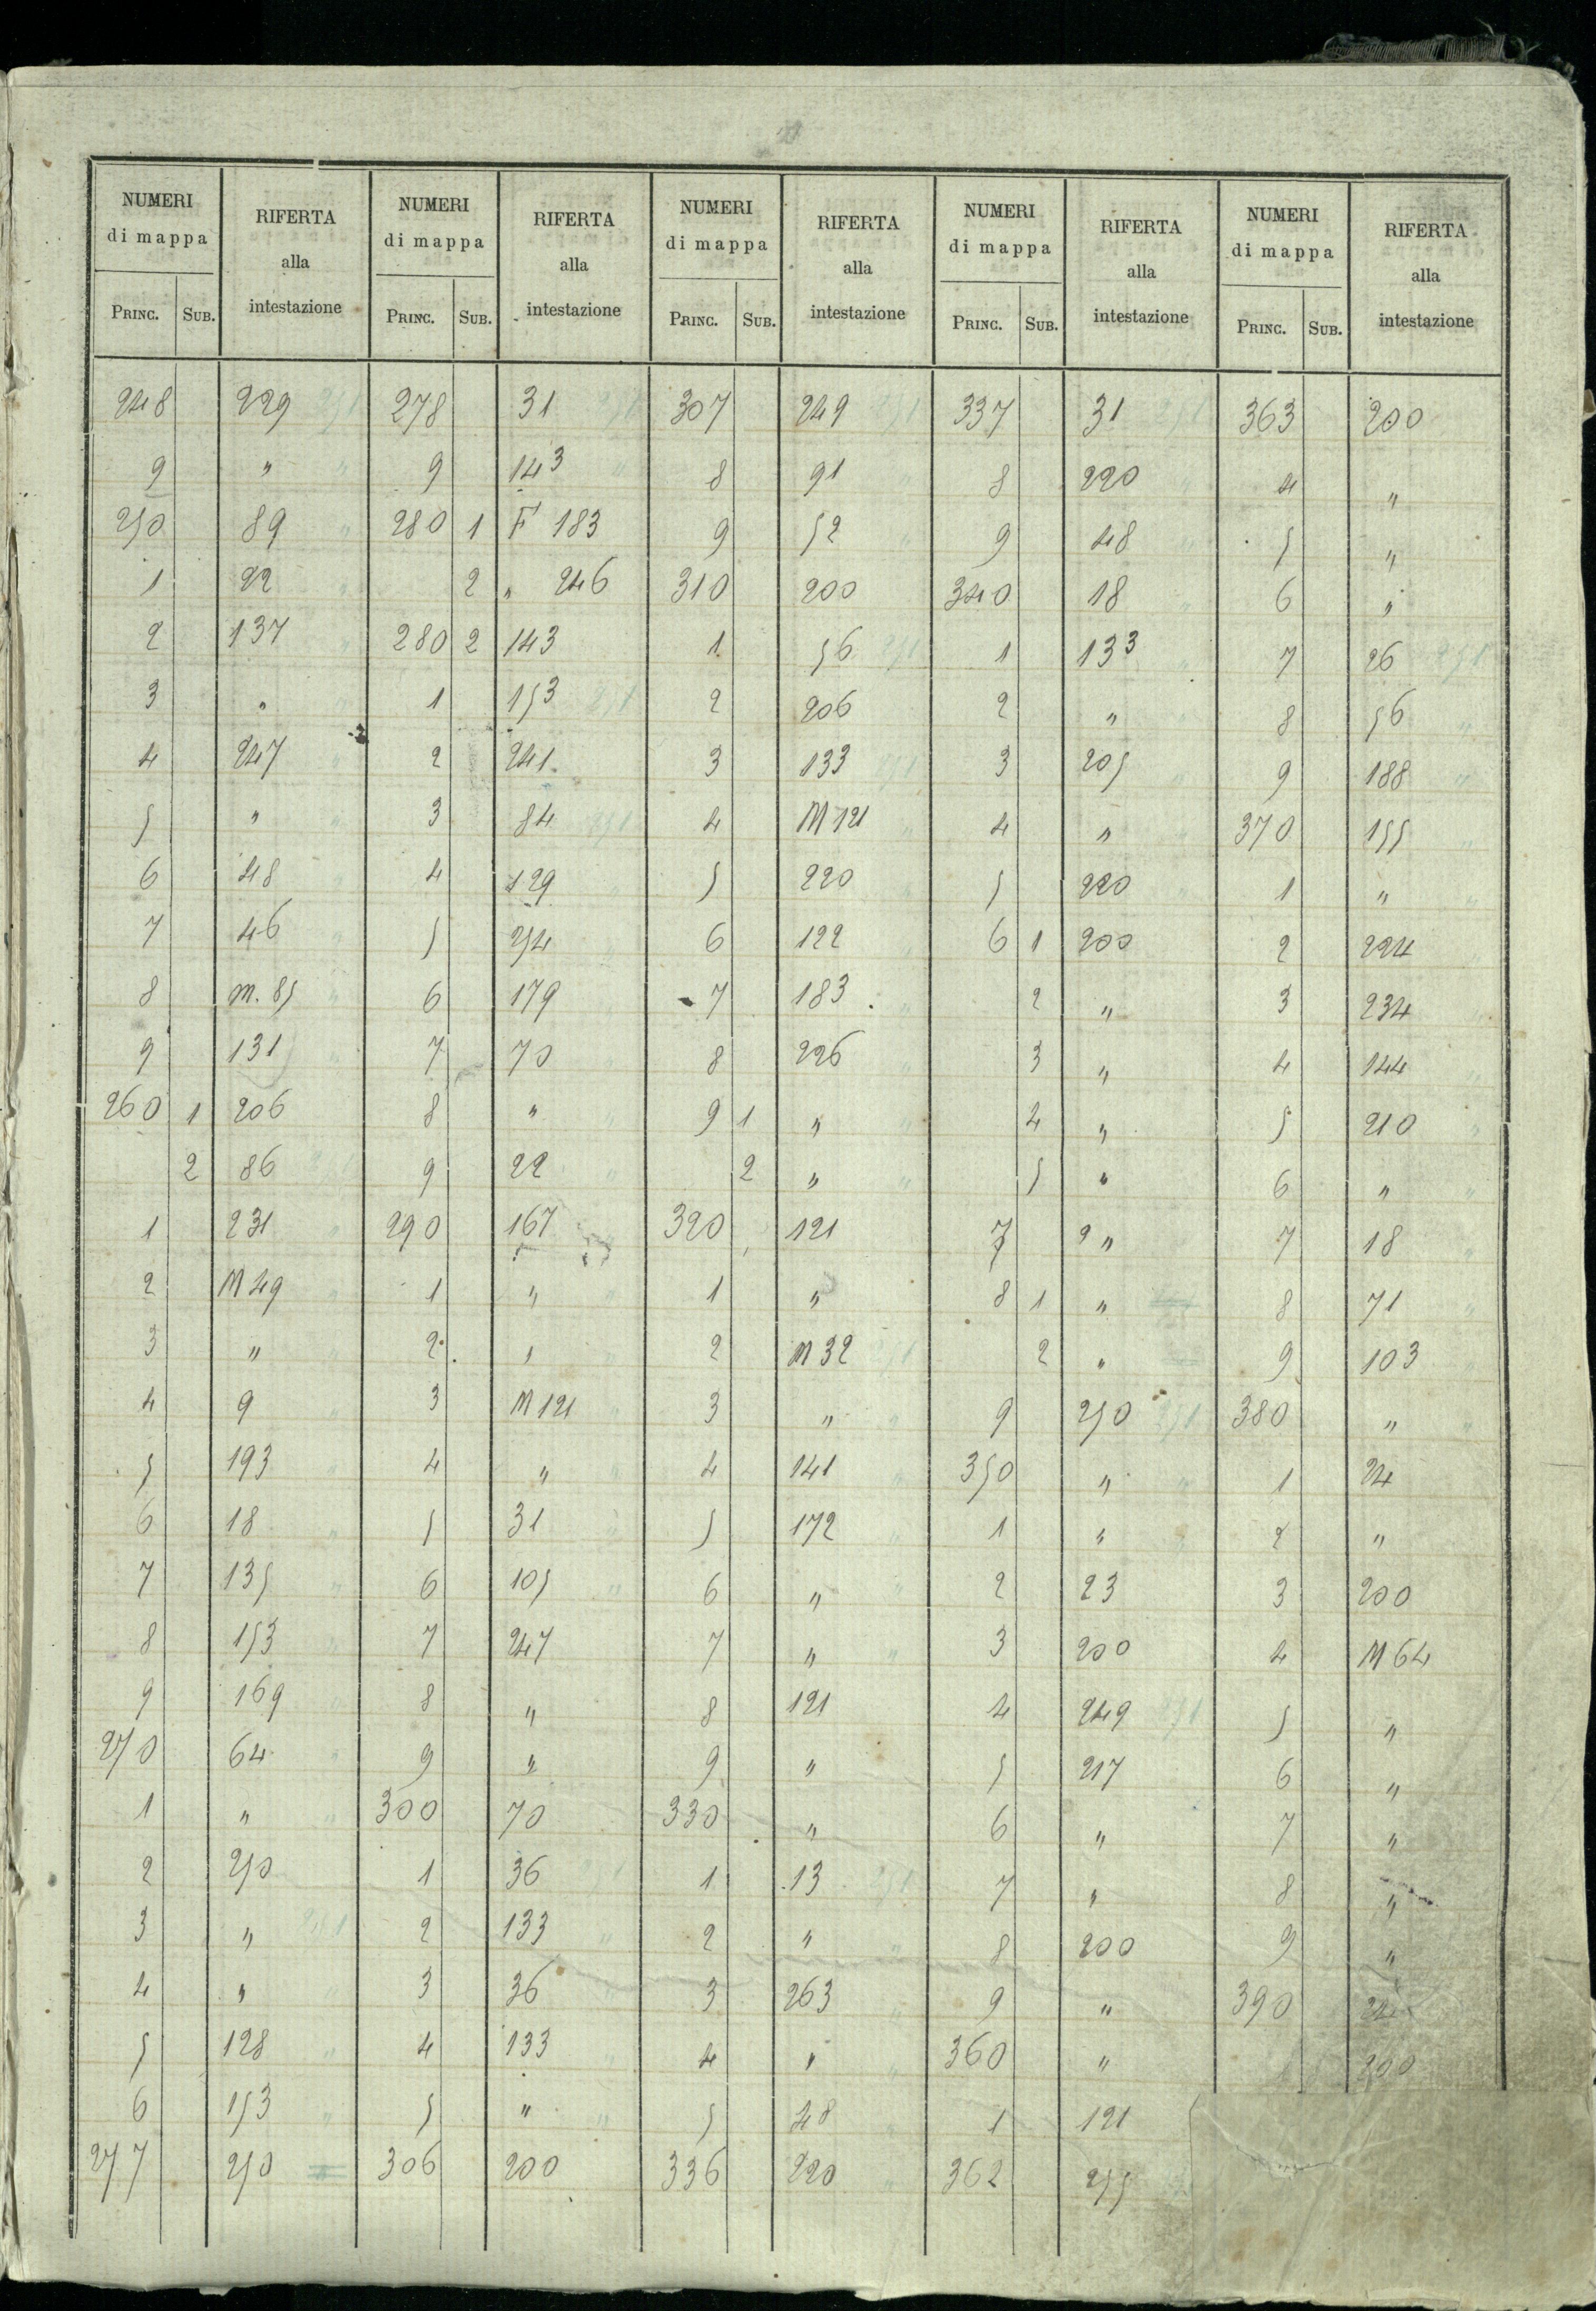 NUMERI di mappa RIFERTA alla intestazione NUMERI di mappa RIFERTA alla intestazione NUMERI di mappa RIFERTA alla intestazione NUMERI di mappa RIFERTA alla intestazione NUMERI di mappa RIFERTA alla intestazione
PRINC. SUB. PRINC. SUB. PRINC. SUB. PRINC. SUB. PRINC. SUB.
248 229 251 278 31 251 307 249 251 337 31 251 363 200
9 " " 9 143 " 8 91 " 8 220 " 4 "
250 89 " 280 1 F 183 9 52 " 9 48 " 5 "
1 22 " 2 " 246 310 200 340 18 " 6 "
2 137 " 280 2 143 1 56 251 1 133 " 7 26 251
3 " " 1 153 251 2 206 2 " " 8 56 "
4 247 " 2 241 3 133 251 3 205 " 9 188 "
5 " " 3 84 251 4 M 121 " 4 " 370 155 "
6 48 " 4 129 " 5 220 5 220 " 1 " "
7 46 " 5 254 6 122 " 6 1 200 2 224 "
8 m. 85 " 6 179 7 183 " 2 " 3 234 "
9 131 " 7 70 " 8 226 " 3 " 4 144 "
260 1 206 8 " " 9 1 " " 4 " 5 210 "
2 86 251 9 22 " 2 " " 5 " 6 " "
1 231 " 290 167 320 121 7 2 " 7 18 "
2 M 49 " 1 " 1 " 8 1 " 8 71 "
3 " " 2 " " 2 M 32 251 2 " 9 103 "
4 9 " 3 M 121 " 3 " " 9 250 251 380 " "
5 193 " 4 " " 4 141 " 350 " " 1 24
6 18 " 5 31 " 5 172 " 1 " " 2 "
7 135 " 6 105 " 6 " " 2 23 3 200
8 153 " 7 247 7 " " 3 200 4 M 64
9 169 " 8 " 8 121 4 249 251 5 "
270 64 " 9 " 9 " 5 217 6 "
1 " " 300 70 330 " 6 " 7 "
2 250 1 36 251 1 13 251 7 " 8 "
3 " 251 2 133 " 2 " " 8 200 9 "
4 " " 3 36 " 3 263 " 9 " 390 24
5 128 " 4 133 " 4 " " 360 " 200
6 153 " 5 " " 5 48 " 1 121
277 250 " 306 200 336 220 " 362 255